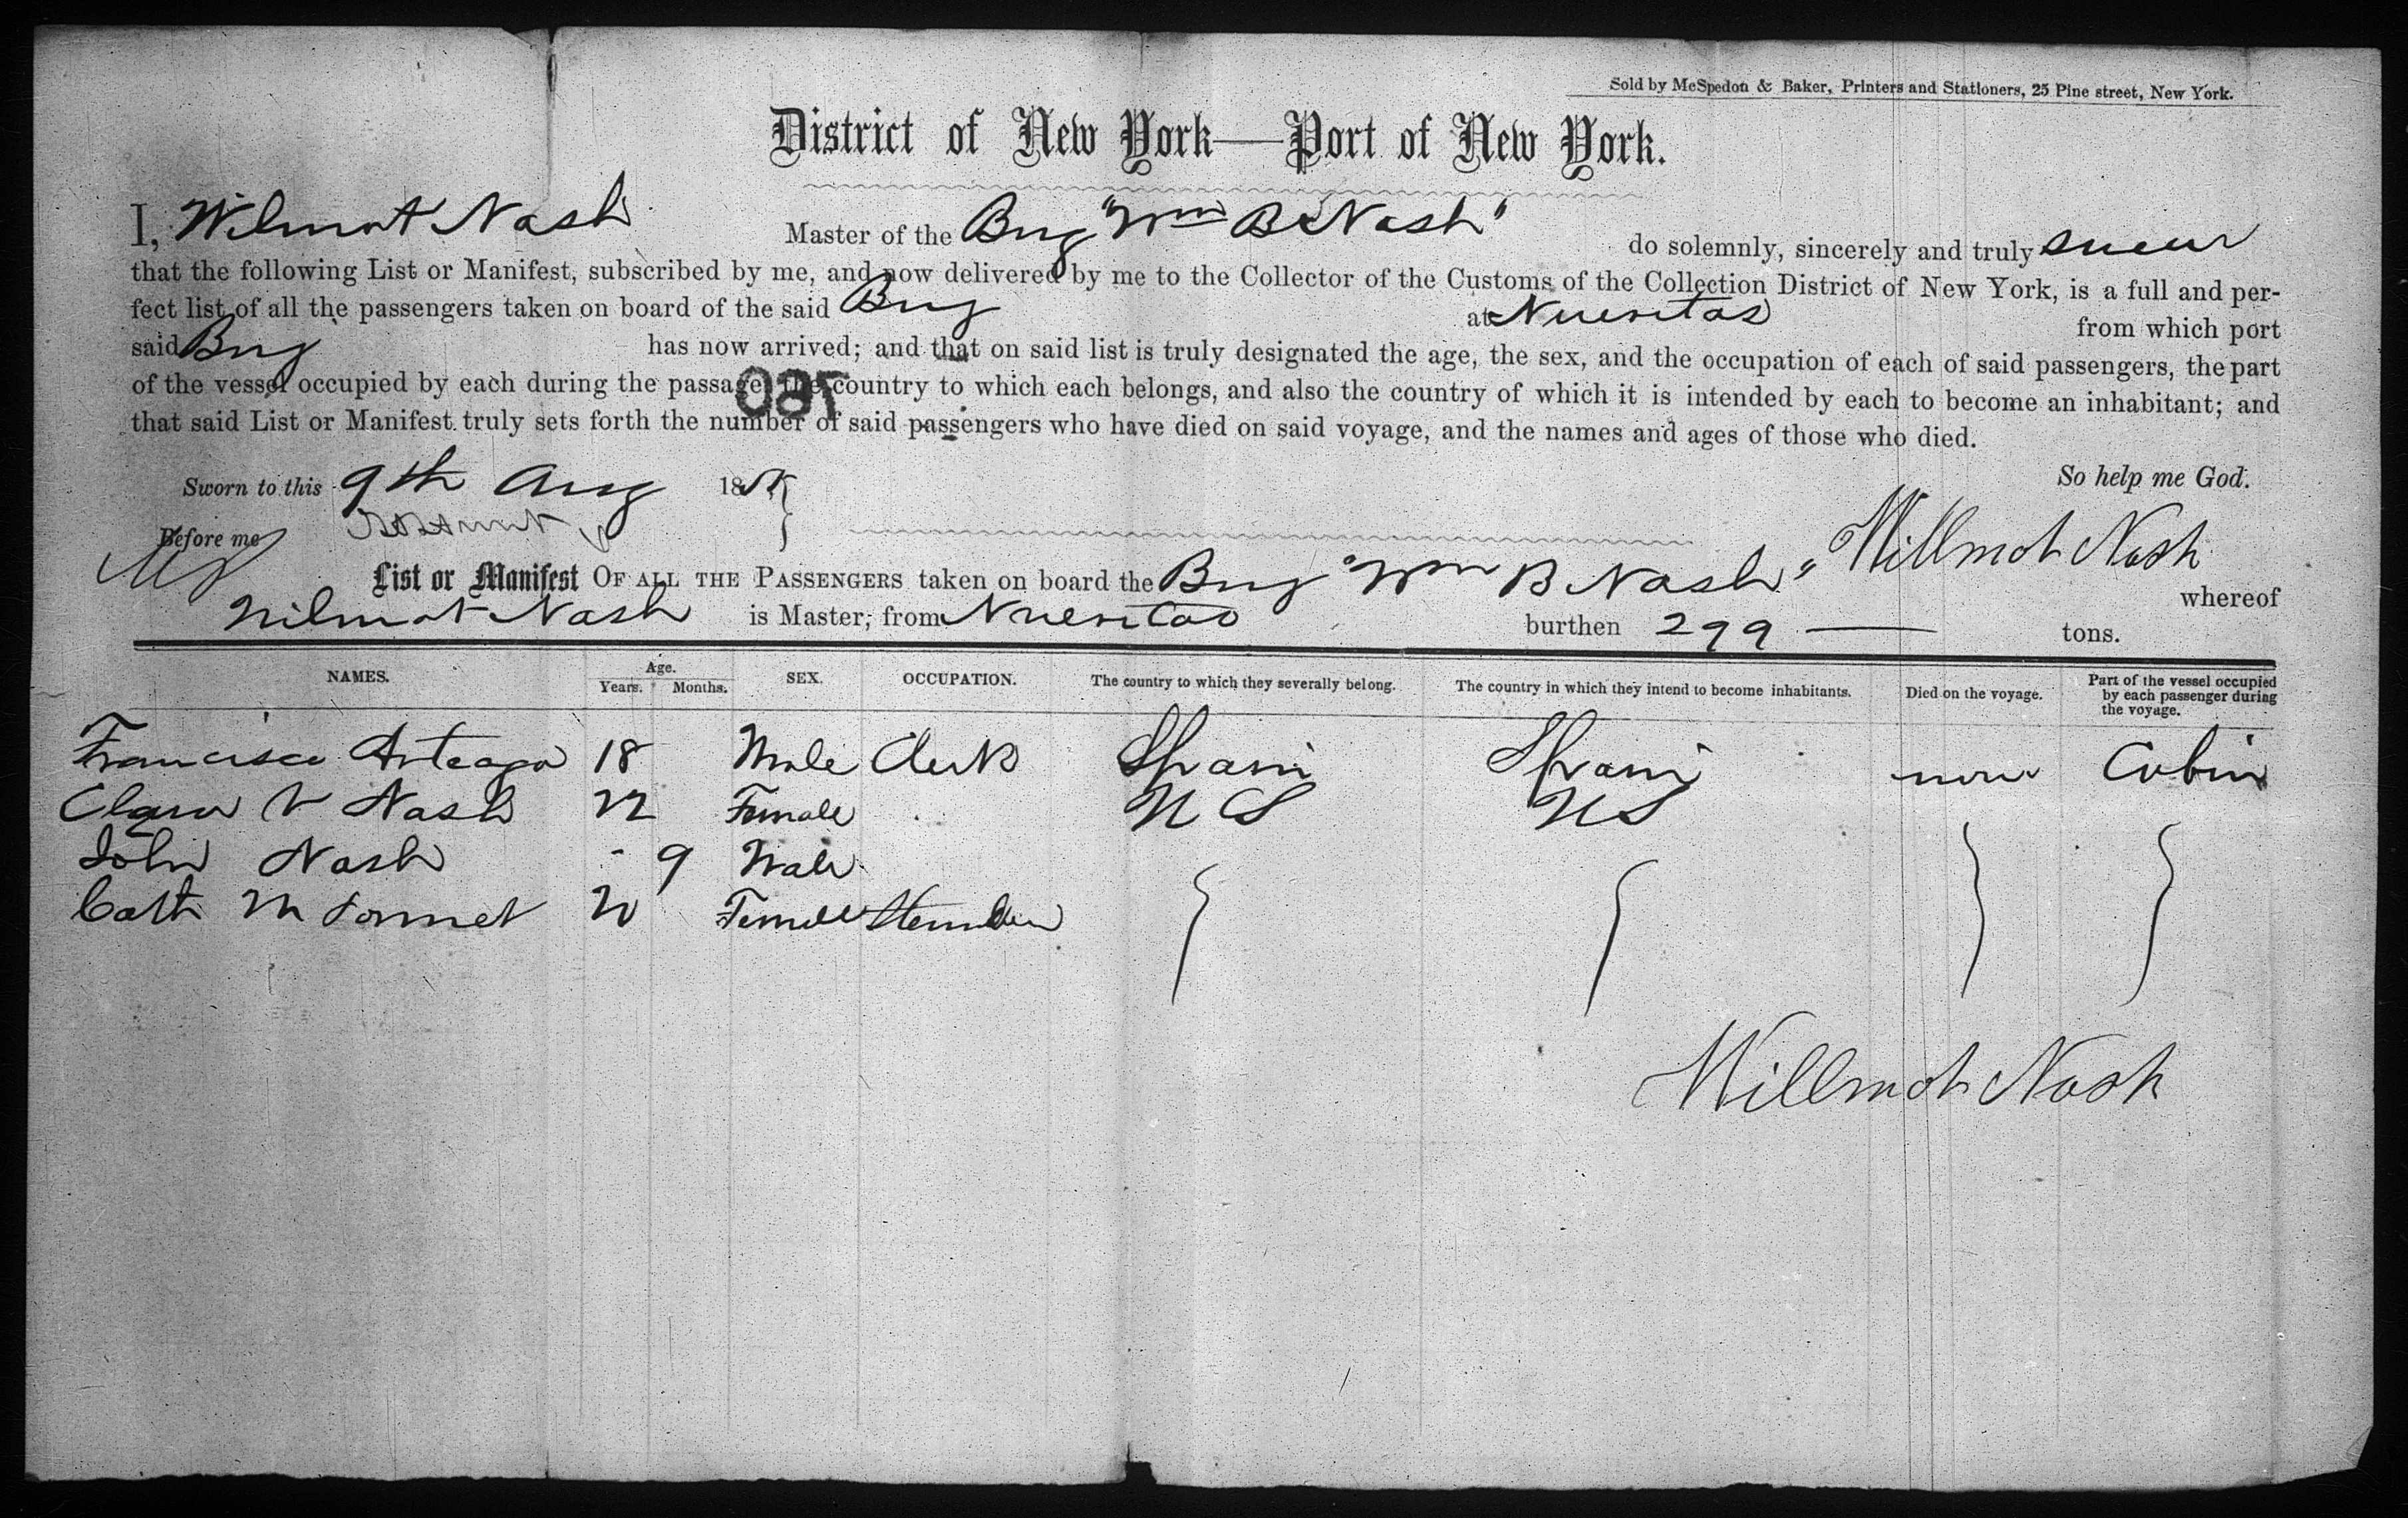 Sold by McSpedon & Baker, Printers and Stationers, 25 Pine street, New York.
District of New York—Port of New York.
I, Wilmot Nash Master of the Brig "Wm B Nash" do solemnly, sincerely and truly swear
that the following List or Manifest, subscribed by me, and now delivered by me to the Collector of the Customs of the Collection District of New York, is a full and per-
fect list of all the passengers taken on board of the said Brig at Nuevitas from which port
said Brig has now arrived; and that on said list is truly designated the age, the sex, and the occupation of each of said passengers, the part
of the vessel occupied by each during the passage, the country to which each belongs, and also the country of which it is intended by each to become an inhabitant; and
that said List or Manifest truly sets forth the number of said passengers who have died on said voyage, and the names and ages of those who died.
Sworn to this 9th Aug 18 So help me God.
Before me Willmot Nash
List or Manifest OF ALL THE PASSENGERS taken on board the Brig "Wm B Nash" whereof
Wilmot Nash is Master, from Nuevitas burthen 299 tons.
NAMES. Age. Years. Months. SEX. OCCUPATION. The country to which they severally belong. The country in which they intend to become inhabitants. Died on the voyage. Part of the vessel occupied by each passenger during the voyage.
Francisco Arteaga 18 Male Clerk Spain Spain none Cabin
Clara V Nash 22 Female U S U S
John Nash - 9 Male
Cath 20 Female
Willmot Nash